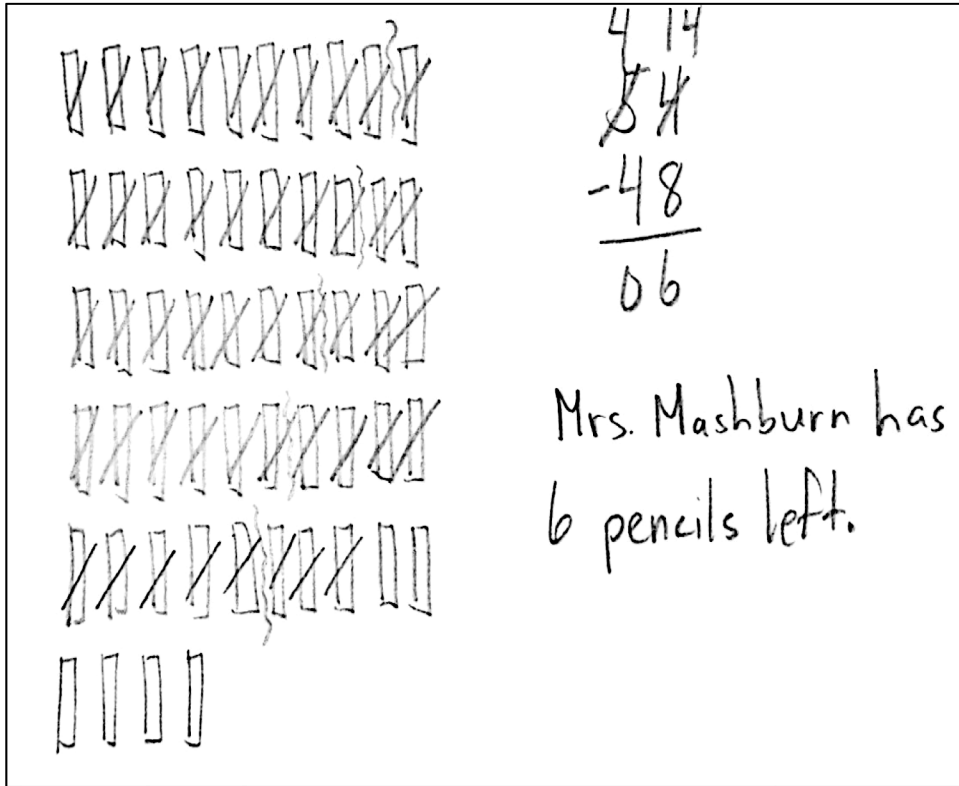 4 14
54
-48
06
Mrs. Mashburn has
6 pencils left.